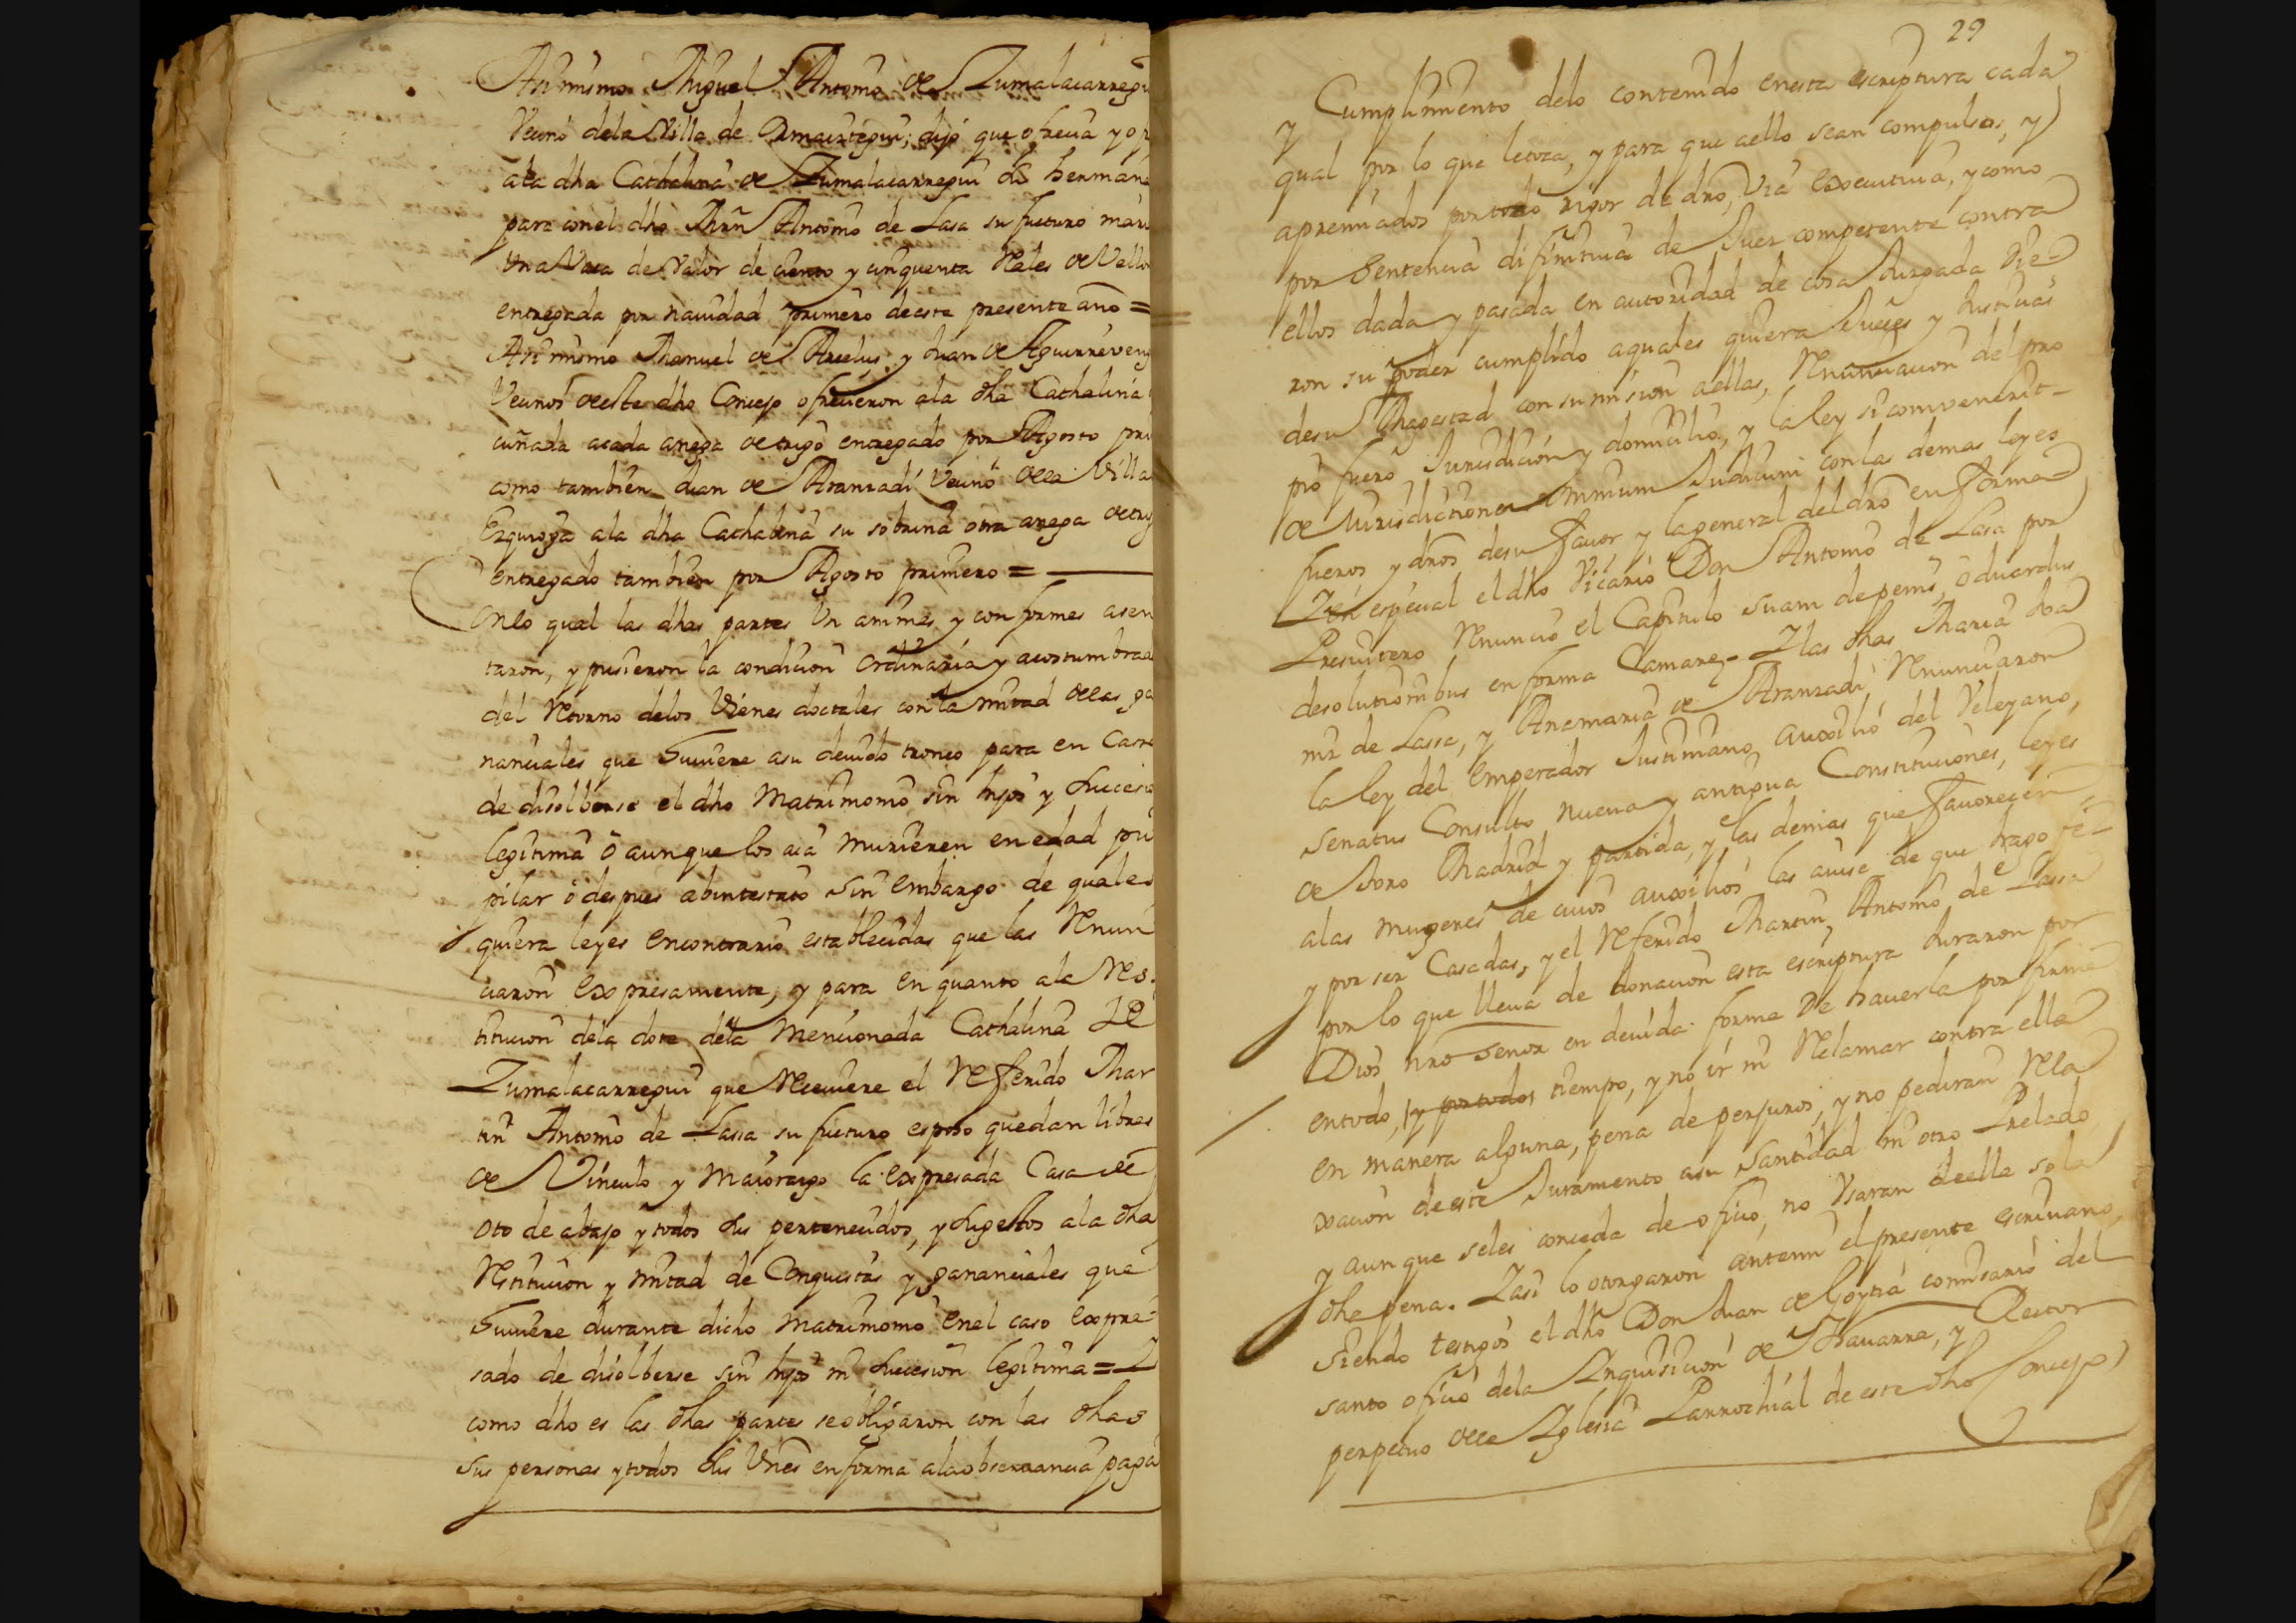 Asi mismo Miguel Antonio de Zumalacarregu
Vecino dela Villa de Ormaiztegui; dijo que ofrecia y o
ala dha Cathalina de Zumalacarregui su hermana
para conel dho Mrn Antonio de Lasa su futuro mari
Una Vaca de Valor de ciento y cinquenta Rales de Vello
entregada por navidad primero deeste presente año =
Asi mismo Manuel de Arcelus, y Juan de Aguirreveng
Vecinos deeste dho Concejo ofrecieron ala dha Cathalina
cuñada acada anega de trigo entregado por Agosto pri
como tambien Juan de Aranzadi Vecino dela Villa
Ezquioga ala dha Cathalina su sobrina otra anega detrig
entregado tambien por Agosto primero =
Conlo qual las dhas partes Un animes y conformes asen
taron, y pusieron la condicion ordinaria y acostumbrada
del Retorno delos Vienes doctales con la mitad delas ga
nanciales que Tuviere asu devido tronco para en Caso
de disolberse el dho Matrimonio sin hijos y Sucesio
legitima ô aunque los aia murieren en edad pu
pilar ô despues abintestato sin embargo de quales
quiera leyes encontrario establecidas que las Renun
ciaron Expresamente, y para en quanto ala Res.
titucion dela dote dela Mencionada Cathalina de
Zumalacarregui que Reciviere el Referido Mar
tin Antonio de Lassa su futuro esposo quedan libres
de Vinculo y Maiorazgo la expresada Casa de
Oto de abajo y todos sus pertenecidos, y sugettos ala dha
Restitucion y mitad de Conquistas y gananciales que
Tuviere durante dicho Matrimonio enel caso expre-
sado de disolberse sin hijos ni Sucesion legitima = Y
como dho es las dhas partes seobligaron con las dhas
sus personas y todos sus Vnes en forma alaobservancia paga
29
y Cumplimiento delo contenido enesta escriptura cada
qual por lo que letoca, y para que aello sean compulsos, y
apremiados portodo rigor de dro, via executiva, y como
por Sentencia difinitiva de Juez competente contra
ellos dada y pasada en autoridad de cosa Juzgada die-
ron su poder cumplido aquales quiera Jueces y Justicias
desu Magestad con sumision aellas, Renunciacion del pro
pio fuero Jurisdicion y domicilio, y la ley siconvenerit
de Jurisdictione omnium Judicum con las demas leyes
fueros y dros desu favor, y la general del dro en forma
Y en especial el dho Vicario Don Antonio de Lasa por
Presvitero Renuncio el Capitulo suam de penis, ôduardus
desolutionibus en forma Camare= Y las dhas Maria
de Lassa, y Anamaria de Aranzadi Renunciaron
la ley del emperador Justiniano auxilio del Veleyano,
Senatus Consulto nueva y antigua Constituciones, leyes
de Toro Madrid y partida, y las demas que favorecen
alas mugeres de cuios auxilios las avise de que hago fe
y por ser Casadas, y el Referido Martin Antonio de Lassa
por lo que lleva de donacion esta escriptura Juraron por
Dios nro Senor en devida forma de haverla por firme
entodo, y portodos tiempo, y no ir ni Reclamar contra ella
en manera alguna, pena de perjuros, y no pediran Rela
xacion deeste Juramento asu Santidad ni otro Prelado
y aun que seles conceda de oficio, no Usaran deella sola
dha pena. Y asi lo otorgaron antemi el presente escrivano,
siendo testigos el dho Don Juan de Goytia comisario del
santo oficio dela Inquisicion de Navarra, y Rector
perpetuo dela Yglesia Parrochial deeste dho Concejo